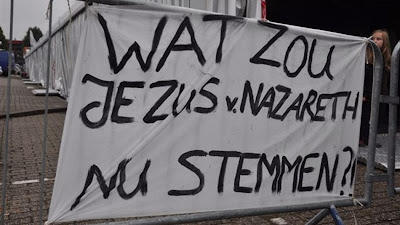 WAT ZOU
JEZUS v. NAZARETH
NU STEMMEN?!